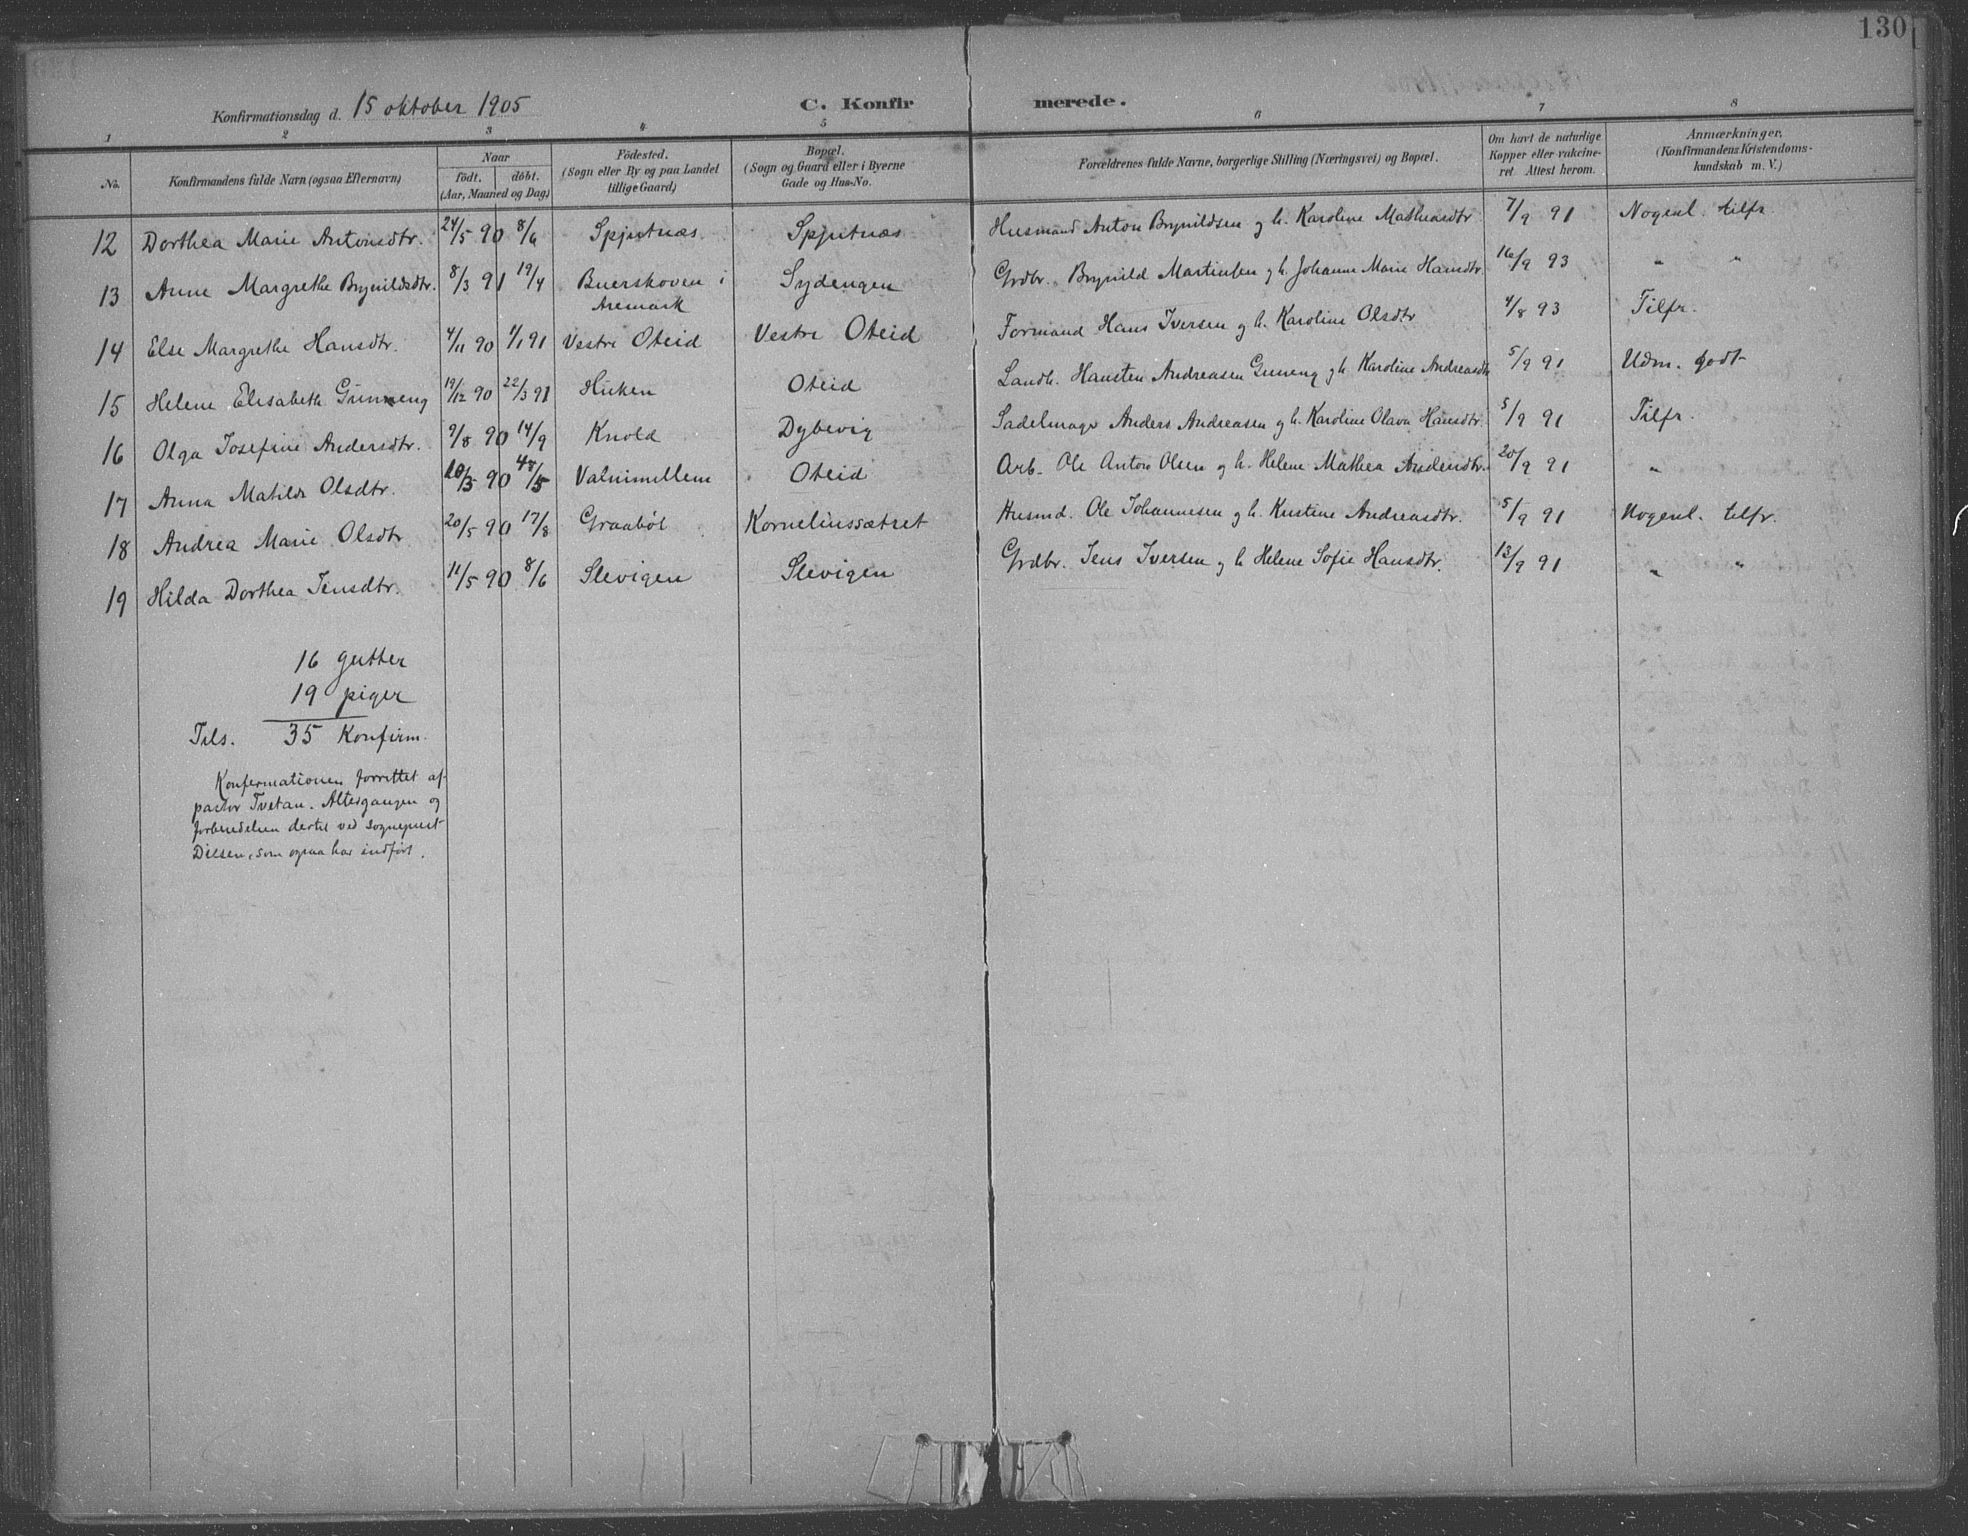 130
Konfirmationsdag d. 15 oktober 1905
C. Konfir merede.
1 2 3 4 5 6 7 8
No. Konfirmandens fulde Navn (ogsaa Efternavn) Naar födt. döbt. (Aar, Maaned og Dag) Födested. (Sogn eller By og paa Landet tillige Gaard) Bopæl. (Sogn og Gaard eller i Byerne Gade og Hus-No. Forældrenes fulde Navne, borgerlige Stilling (Næringsvei) og Bopæl. Om havt de naturlige Kopper eller vakcineret Attest herom. Anmærkninger. (Konfirmandens Kristendomskundskab m. V.)
12 Dorthea Marie Antonsdtr. 24/5 90 8/6 Spjutnæs Spjutnæs Husmand Anton Brynildsen og h. Karoline Matheasdtr. 7/9 91 Nogenl. tilfr.
13 Anne Margrethe Brynildsdtr. 8/3 91 19/4 Buerskoven i Aremark Sydengen Grdbr. Brynild Martinsen og h. Johanne Marie Hansdtr. 16/9 93 " "
14 Else Margrethe Hansdtr. 4/11 90 1/1 91 Vestre Oteid Vestre Oteid Formand Hans Iversen og h. Karoline Olsdtr 4/8 93 Tilfr.
15 Helene Elisabeth Gunneng 19/12 90 22/3 91 Huken Oteid Landh. Hansten Andreasen Guneng og h. Karoline Andreasdtr 5/9 91 Udm. godt
16 Olga Josefine Andersdtr. 9/8 90 14/9 Knold Dybevig Sadelmager Anders Andreasen og h. Karoline Olava Hansdtr. 5/9 91 Tilfr.
17 Anna Matilde Olsdtr. 10/3 90 /5 Oteid Arb. Ole Anton Olsen og h. Helene Mathea Andersdtr. 20/9 91 "
18 Andrea Marie Olsdtr 20/5 90 17/8 Graabøl Korneliussætret Husmd. Ole Johannesen og h. Kristine Andreasdtr. 5/9 91 Nogenl. tilfr.
19 Hilda Dorthea Jensdtr. 11/5 90 8/6 Slevigen Slevigen Grdbr. Jens Iversen og h Helene Sofie Hansdtr. 13/9 91 " "
16 gutter
19 piger
Tils. 35 Konfirm.
Konfermationen forrettet af
pastor Tvetan. Altergangen og
forberedelsen dertil ved sogneprest
Dilsen, som ogsaa har indført.